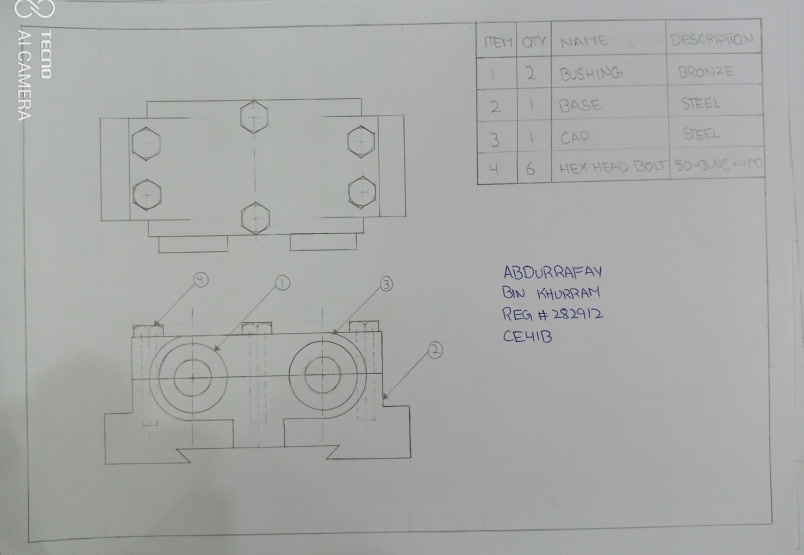 TECNO
AI CAMERA
ITEM QTY NAME DESCRIPTION
1 2 BUSHING BRONZE
2 1 BASE STEEL
3 1 CAP STEEL
4 6 HEX HEAD BOLT 50-13UNC×400
ABDURRAFAY
BIN KHURRAM
REG # 282912
CE41B
4 1 3
2